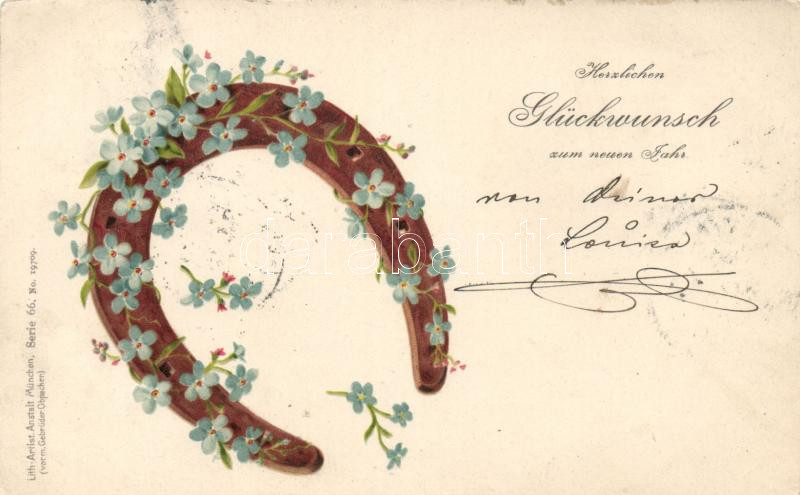 Herzlichen
Glückwunsch
zum neuen Jahr.
von Deiner
Louisa
darabanth
Lith.-Artist. Anstalt München, Serie 66. No. 19709.
(vorm. Gebrüder Obpacher)